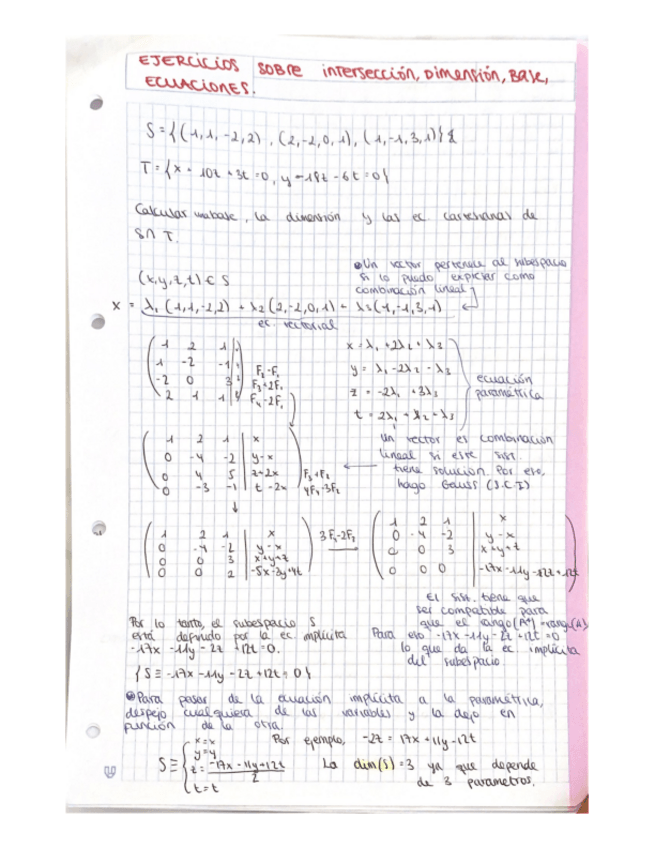 EJERCICIOS SOBRE intersección, Dimensión, Base,
ECUACIONES.
S = {(1,1,-2,2), (2,-2,0,1), (1,-1,3,1)}
T = {x - 10z + 3t = 0, y - 18z - 6t = 0}
Calcular una base, la dimensión y las ec cartesianas de
S∩T.
(x,y,z,t) ∈ S
Un vector pertenece al subespacio
si lo puedo expresar como
combinación lineal
x = λ1 (1,1,-2,2) + λ2 (2,-2,0,1) + λ3 (1,-1,3,1)
ec. vectorial
1 2 1
1 -2 -1
-2 0 3
2 1 1 t
F2-F1
F3+2F1
F4-2F1
x = λ1 + 2λ2 + λ3
y = λ1 - 2λ2 - λ3
z = -2λ1 + 3λ3
t = 2λ1 + λ2 + λ3
ecuación
paramétrica
1 2 1 | x
0 -4 -2 | y-x
0 4 5 | z+2x
0 -3 -1 | t-2x
F3+F2
4F4-3F2
Un vector es combinación
lineal si este sist.
tiene solución. Por eso,
hago Gauss (S.C.I)
1 2 1 | x
0 -4 -2 | y-x
0 0 3 | x+y+z
0 0 2 | -5x-3y+4t
3F4-2F3
1 2 1 | x
0 -4 -2 | y-x
0 0 3 | x+y+z
0 0 0 | -17x-11y-2z+12t
El sist. tiene que
ser compatible para
que el rango(A*)=rang(A)
Para eso -17x-11y-2z+12t=0
lo que da la ec implícita
del subespacio.
Por lo tanto, el subespacio S
está definido por la ec implícita
-17x -11y -2z +12t=0.
{S ≡ -17x -11y -2z +12t = 0}
Para pasar de la ecuación implícita a la paramétrica,
despejo cualquiera de las variables y la dejo en
función de la otra.
Por ejemplo, -2z = 17x + 11y - 12t
S ≡
x = x
y = y
z = -17x - 11y + 12t / 2
t = t
La dim(S) = 3 ya que depende
de 3 parametros.